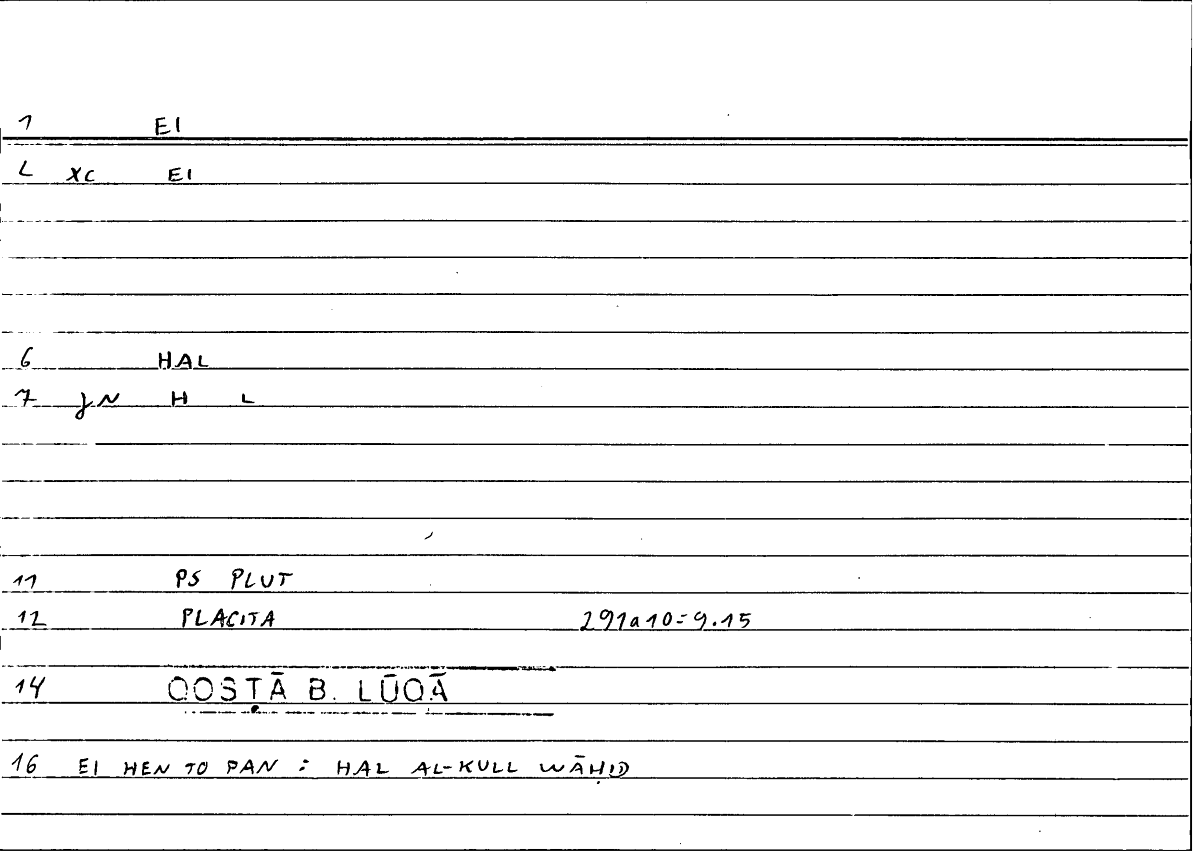 1 EI
L XC EI
6 HAL
7 jN H L
11 PS PLUT
12 PLACITA 291a10=9.15
14 QOSṬĀ B. LŪQĀ
16 EI HEN TO PAN : HAL AL-KULL WĀḤID